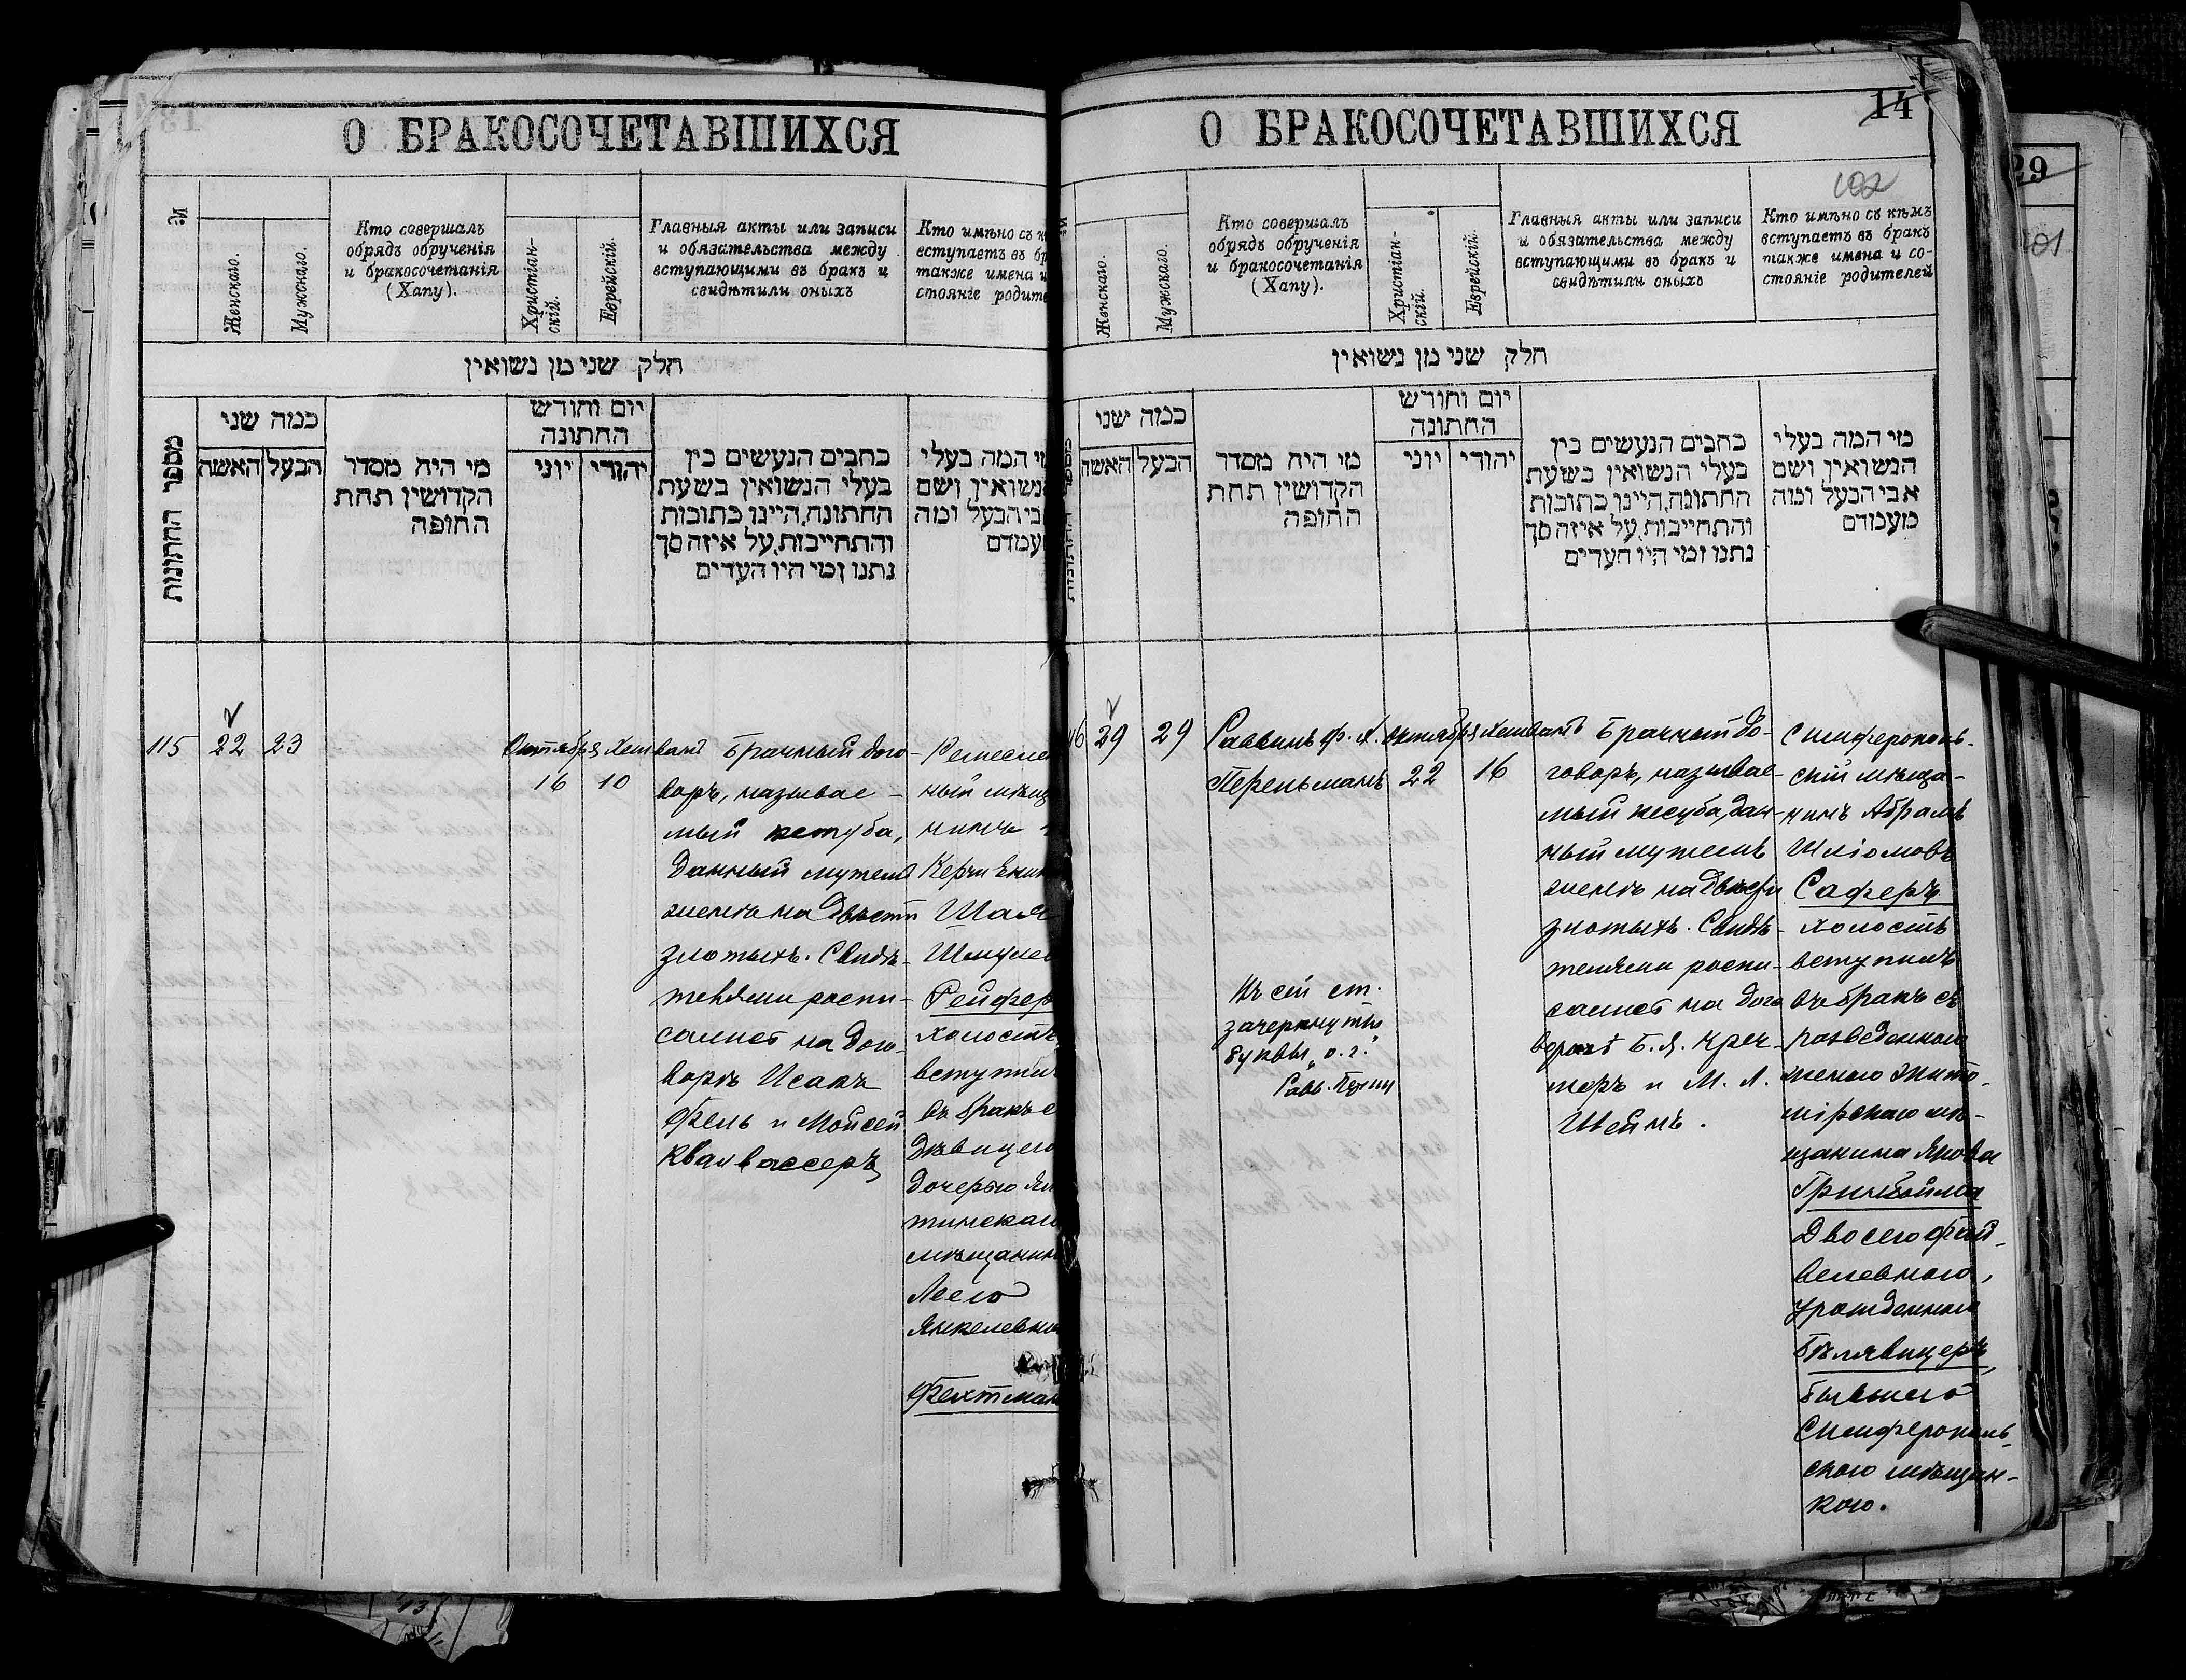 О БРАКОСОЧЕТАВШИХСЯ
№
Женскаго.
Мужскаго.
Кто совершалъ
обрядъ обрученія
и бракосочетанія
(Хапу).
Христіан-
скій.
Еврейскій.
Главныя акты или записи
и обязательства между
вступающими въ бракъ и
свидѣтили оныхъ
Кто имѣно съ
вступаетъ въ
также имена и
стояніе
חלק שני מן נשואין
מספר החתונות
כמה שני
האשה
הבעל
מי היה מסדר
הקדושין תחת
החופה
יום וחודש
החתונה
יוני
יהודי
כתבים הנעשים בין
בעלי הנשואין בשעת
החתונה, היינו כתובות
והתחייבות, על איזה סך
נתנו ומי היו העדים
המה בעלי
ושם
הבעל ומה
115
22
23
Октября
16
Хешвана
10
Брачный дого-
воръ, называе-
мый кетуба,
данный мужемъ
женѣ на двѣсти
злотыхъ. Свидѣ-
телями роспи-
сались на дого-
ворѣ Исакъ
Фель и Мойсей
Квалвассеръ
Шмуле
холостъ
вступилъ
въ бракъ с
дѣвицею
дочерью
Лею
Янкелевн
Фехтман
О БРАКОСОЧЕТАВШИХСЯ
14
102
Женскаго.
Мужскаго.
Кто совершалъ
обрядъ обрученія
и бракосочетанія
(Хапу).
Христіан-
скій.
Еврейскій.
Главныя акты или записи
и обязательства между
вступающими въ бракъ и
свидѣтили оныхъ
Кто имѣно съ кѣмъ
вступаетъ въ бракъ
также имена и со-
стояніе родителей
חלק שני מן נשואין
כמה שני
האשה
הבעל
מי היה מסדר
הקדושין תחת
החופה
יום וחודש
החתונה
יוני
יהודי
כתבים הנעשים בין
בעלי הנשואין בשעת
החתונה, היינו כתובות
והתחייבות, על איזה סך
נתנו ומי היו העדים
מי המה בעלי
הנשואין ושם
אבי הבעל ומה
מעמדם
29
29
Раввинъ Ф. Л.
Перельманъ
Октября
22
Хешвана
16
Къ сей ст.
зачеркнуты
буквы „о. г."
Равв.
Брачный до-
говоръ, называе-
мый кесуба, дан-
ный мужемъ
женѣ на двѣсти
злотыхъ. Свидѣ-
телями роспи-
сались на дого
ворѣ Б. Я. Креч-
меръ и М. Л.
Штейнъ.
Симферополь-
скій мѣща-
нинъ Абрамъ
Шліомовъ
Саферъ
холостъ
вступилъ
въ бракъ съ
разведенною
женою Жито-
мірскаго мѣ-
щанина
Гринбойма
Двосею Фай-
велевною,
урожденною
Бѣлявцеръ,
бывшею
Симферополь-
скою мѣщан-
кою.
29
101